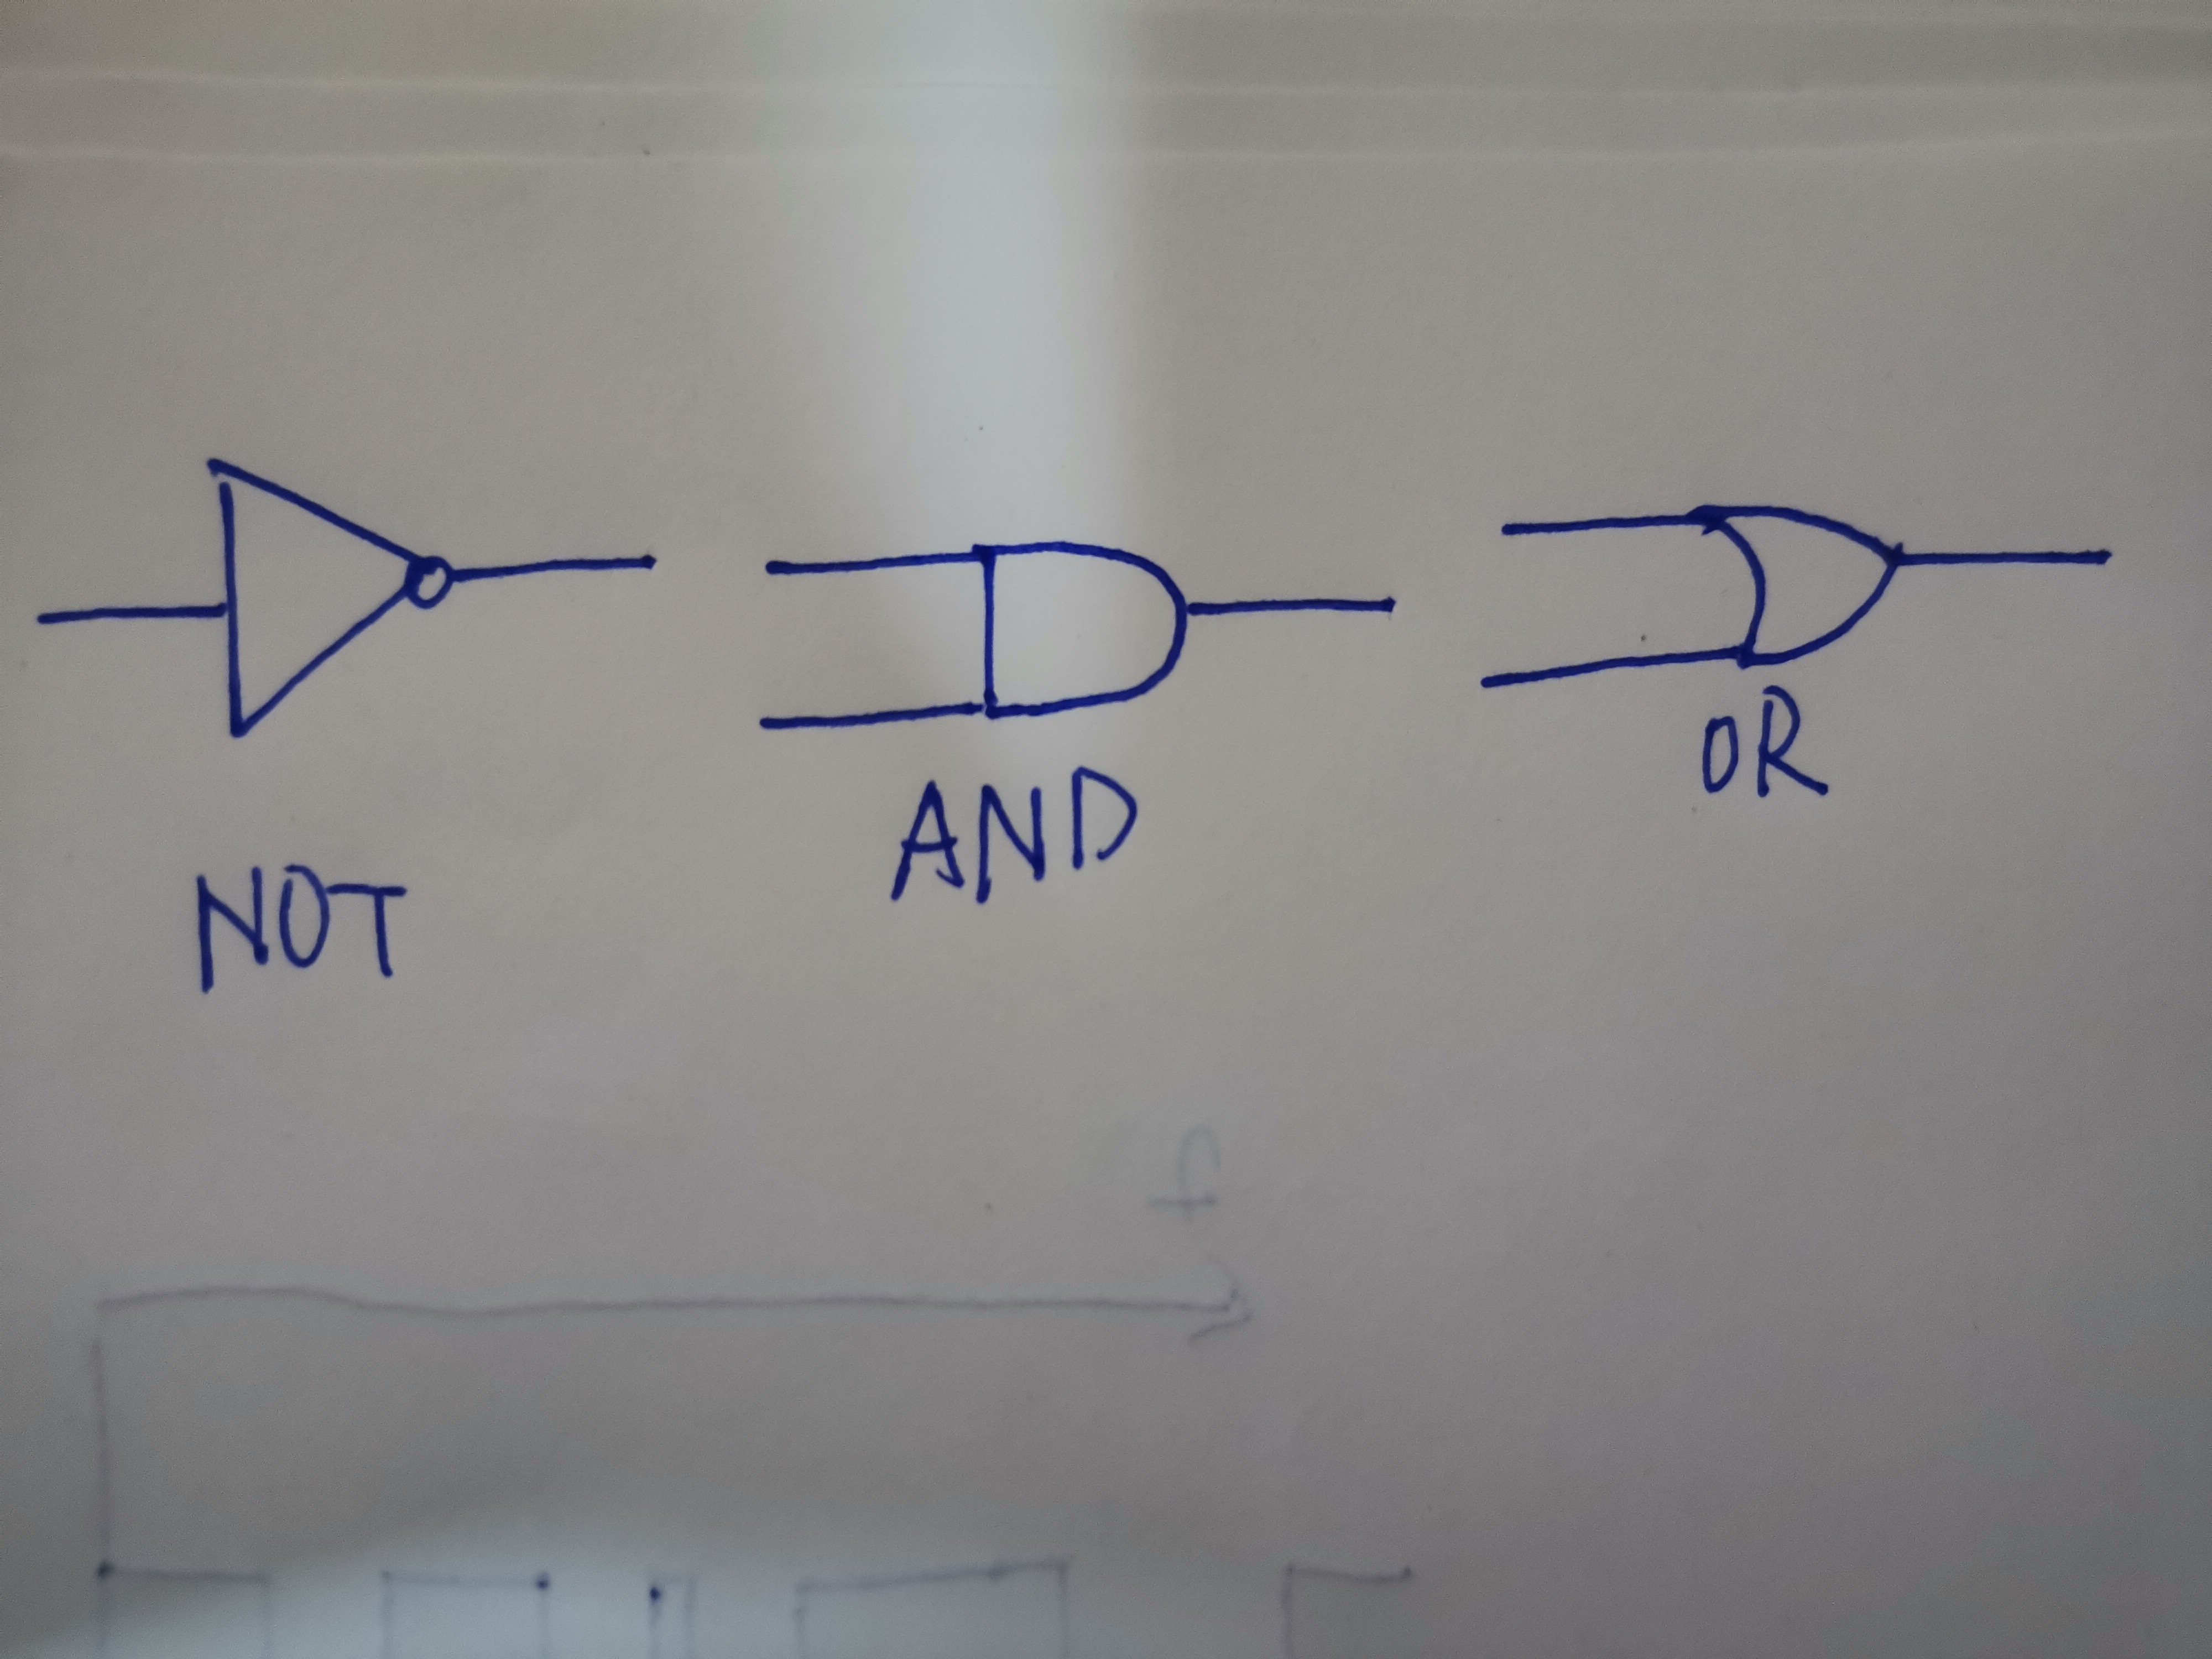 NOT
AND
OR